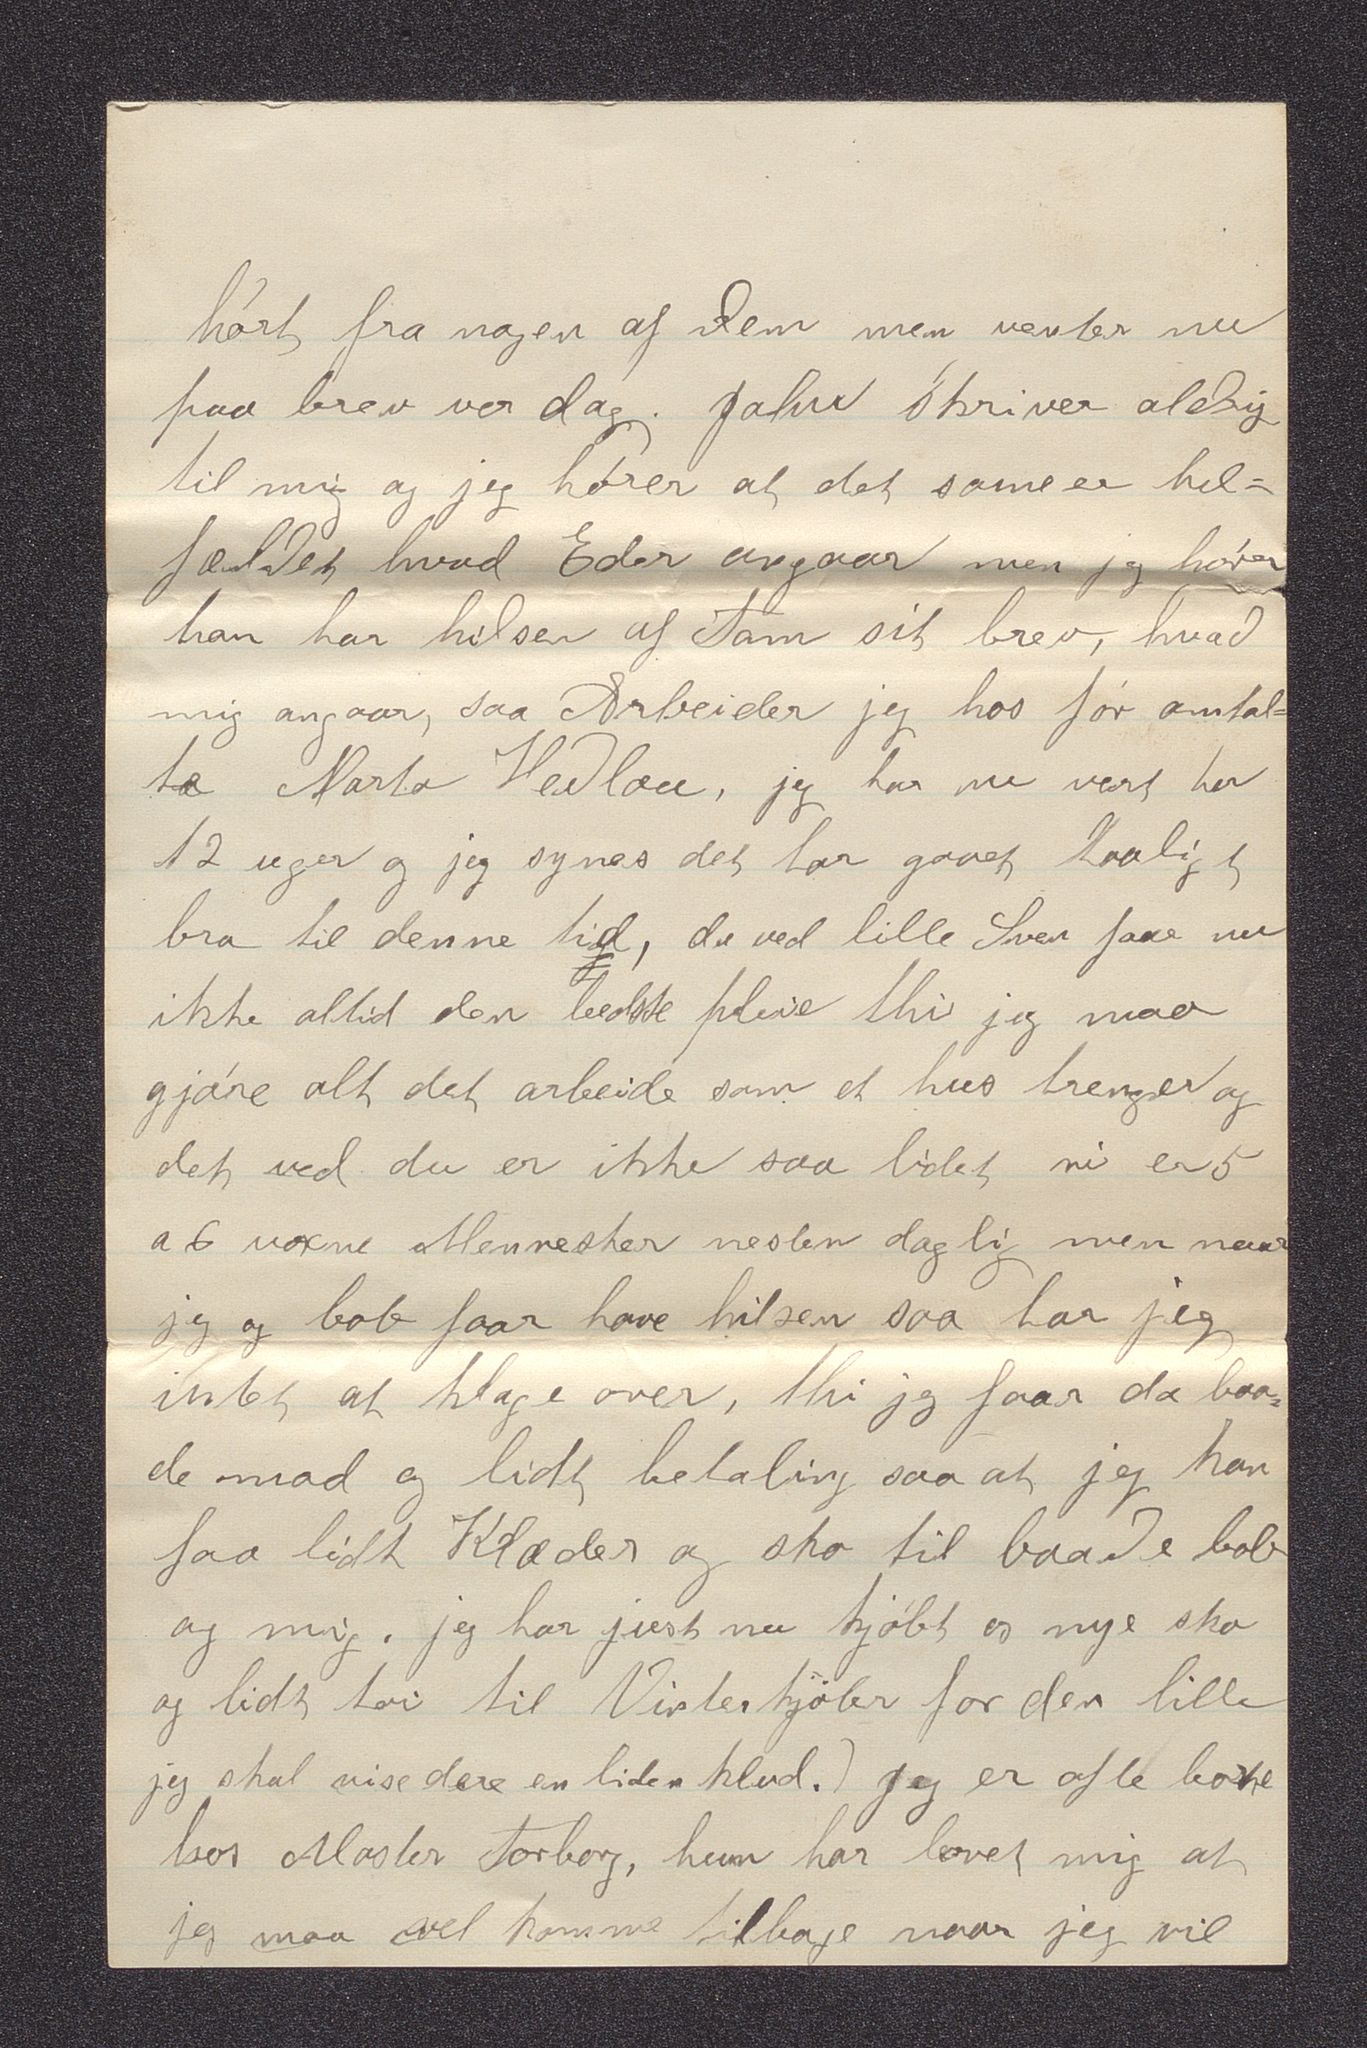 hört fra nogen af Dem men venter nu
paa brev ver dag. John skriver aldrig
til mig og jeg hører at det same er hel=
fældet hvad Eder angaar men jeg hører
han har hilsen af Tam sit brev, hvad
mig angaar, saa Arbeider jeg hos før amtal=
te Marta Hedlau, jeg har nu vært her
12 uger og jeg synes det har gaaet taalig t
bra til denne tid, du ved lille Sven faae nu
ikke altid den bedste pleie thi jeg maa
gjøre alt det arbeide som et hus trenger og
det ved du er ikke saa lidet vi er 5
a 6 voxne Mennesker nesten daglig men naar
jeg og bob faar have hilsen saa har jeg
intet at klage over, thi jeg faar da baa=
de mad og lidt betaling saa at jeg kan
faa lidt Klæder og sko til baade bob
og mig. jeg har just nu kjøbt os nye sko
og lidt toi til Vinterkjöler for den lille
jeg skal vise dere en liden klud.) jeg er ofte borte
hos Moster Torborg, hun har lovet mig at
jeg maa vel komme tilbage naar jeg vil